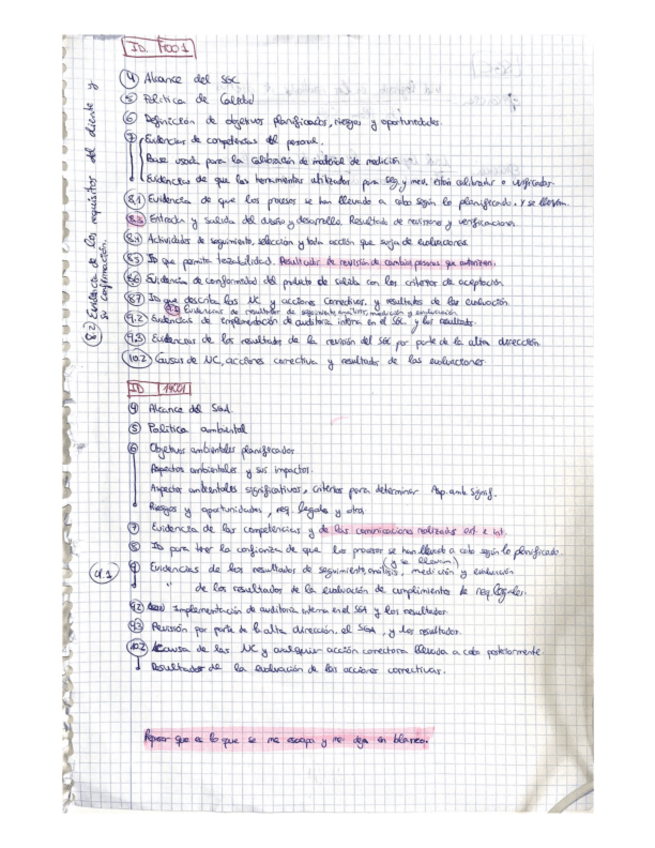 ID 9001
④ Alcance del SGC
⑤ Política de Calidad
⑥ Definición de objetivos planificados, riesgos y oportunidades.
⑦ Evidencias de competencias del personal.
Base usada para la calibración de material de medición
Evidencias de que las herramientas utilizadas para seg. y med. están calibradas o verificadas.
8.1 Evidencia de que los procesos se han llevado a cabo según lo planificado. Y se llevan.
8.2) Evidencia de los requisitos del cliente y su confirmación.
8.3 Entradas y salidas del diseño y desarrollo. Resultado de revisiones y verificaciones
8.4 Actividades de seguimiento, selección y toda acción que surja de evaluaciones
8.5 ID que permita trazabilidad. Resultados de revisión de cambios personas que autorizan.
8.6 Evidencia de conformidad del producto de salida con los criterios de aceptación.
8.7 ID que describa las NC y acciones correctivas, y resultados de la evaluación.
9.1 Evidencias de resultados de seguimiento, análisis, medición y evaluación
9.2 Evidencias de implementación de auditoría interna en el SGC y los resultados.
9.3 Evidencias de los resultados de la revisión del SGC por parte de la alta dirección.
10.2 Causas de NC, acciones correctivas y resultados de las evaluaciones
ID 14001
④ Alcance del SGA.
⑤ Política ambiental
⑥ Objetivos ambientales planificados
Aspectos ambientales y sus impactos.
Aspectos ambientales significativos, criterios para determinar Asp. amb. Signif.
Riesgos y oportunidades, req. legales y otros
⑦ Evidencia de las competencias y de las comunicaciones realizadas ext. e int.
⑧ ID para tener la confianza de que los procesos se han llevado a cabo según lo planificado.
(y se llevan)
9.1
⑨ Evidencias de los resultados de seguimiento, análisis, medición y evaluación
" de los resultados de la evaluación de cumplimientos de req. legales.
9.2 Implementación de auditoría interna en el SGA y los resultados.
9.3 Revisión por parte de la alta dirección, el SGA, y los resultados.
10.2 causa de las NC y cualquier acción correctora llevada a cabo posteriormente.
Resultados de la evaluación de las acciones correctivas.
Repasar que es lo que se me escapa y me deja en blanco.